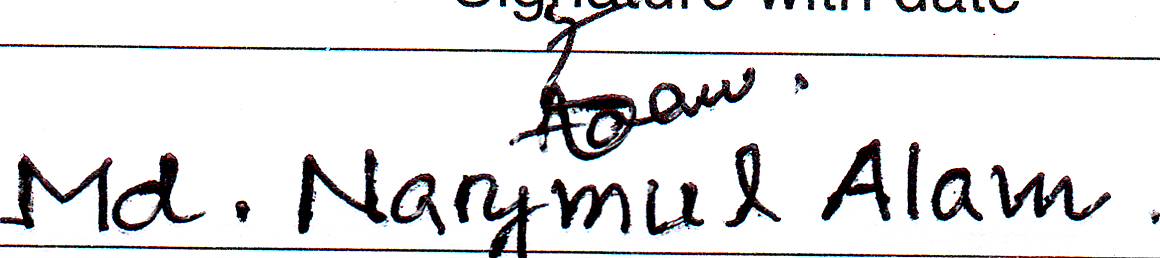 Signature with date
Md. Narymul Alam.